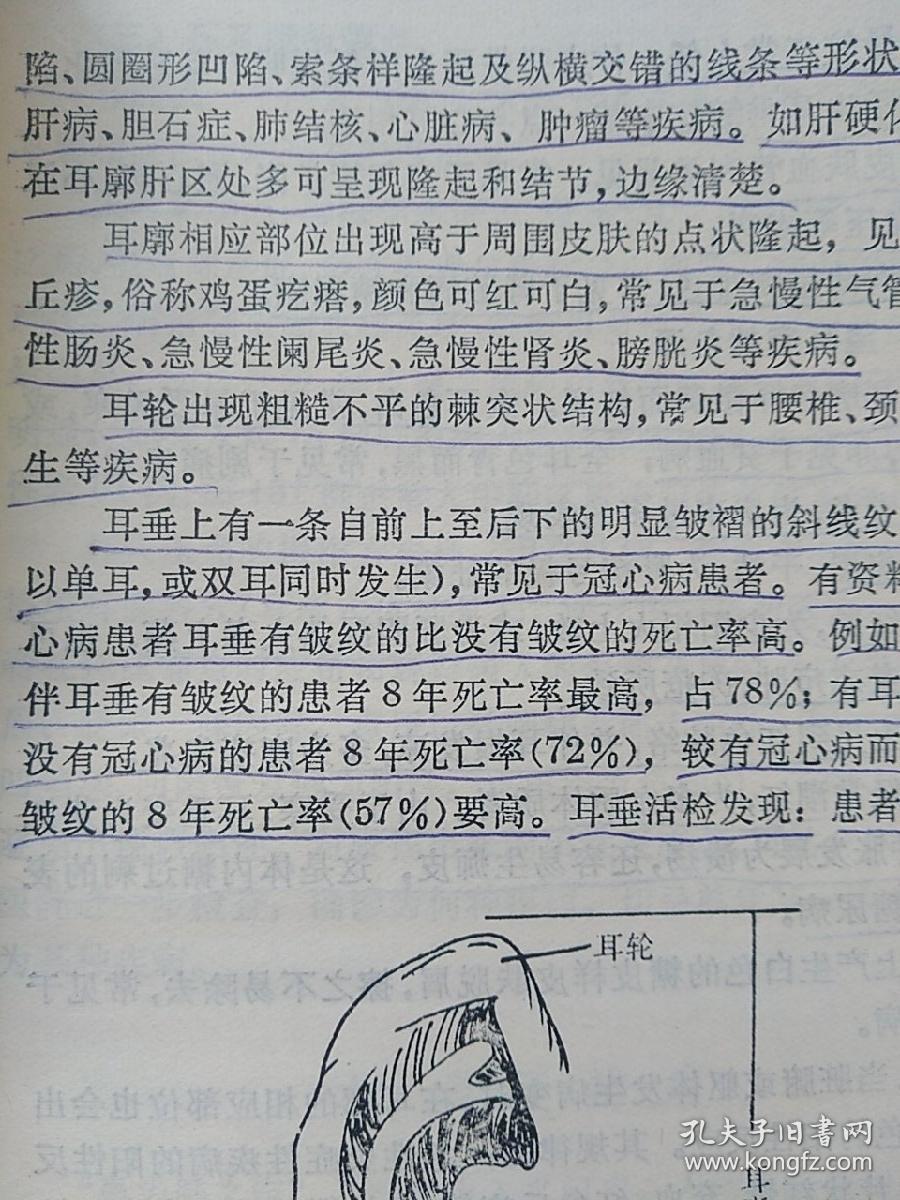 陷、圆圈形凹陷、索条样隆起及纵横交错的线条等形状
肝病、胆石症、肺结核、心脏病、肿瘤等疾病。如肝硬化
在耳廓肝区处多可呈现隆起和结节,边缘清楚。
耳廓相应部位出现高于周围皮肤的点状隆起，见
丘疹,俗称鸡蛋疙瘩,颜色可红可白,常见于急慢性气管
性肠炎、急慢性阑尾炎、急慢性肾炎、膀胱炎等疾病。
耳轮出现粗糙不平的棘突状结构,常见于腰椎、颈
生等疾病。
耳垂上有一条自前上至后下的明显皱褶的斜线纹
以单耳,或双耳同时发生),常见于冠心病患者。有资料
心病患者耳垂有皱纹的比没有皱纹的死亡率高。例如
伴耳垂有皱纹的患者8年死亡率最高，占78%；有耳
没有冠心病的患者8年死亡率(72%)，较有冠心病而
皱纹的8年死亡率(57%)要高。耳垂活检发现：患者
耳轮
耳
孔夫子旧书网
www.kongfz.com